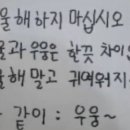 울해하지 마십시오
울과 우웅은 한끗 차이입
울해 말고 귀여워지
같이 : 우웅~